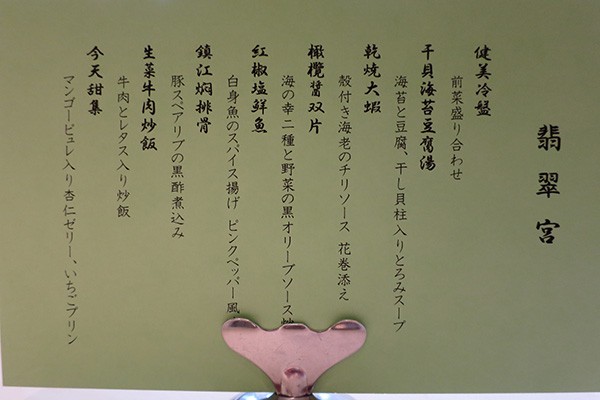 翡翠宮
健美冷盤
前菜盛り合わせ
干貝海苔豆腐湯
海苔と豆腐、干し貝柱入りとろみスープ
乾焼大蝦
殻付き海老のチリソース 花巻添え
橄欖醤双片
海の幸二種と野菜の黒オリーブソース炒
紅椒塩鮮魚
白身魚のスパイス揚げ ピンクペッパー風
鎮江焖排骨
豚スペアリブの黒酢煮込み
生菜牛肉炒飯
牛肉とレタス入り炒飯
今天甜集
マンゴーピュレ入り杏仁ゼリー、いちごプリン